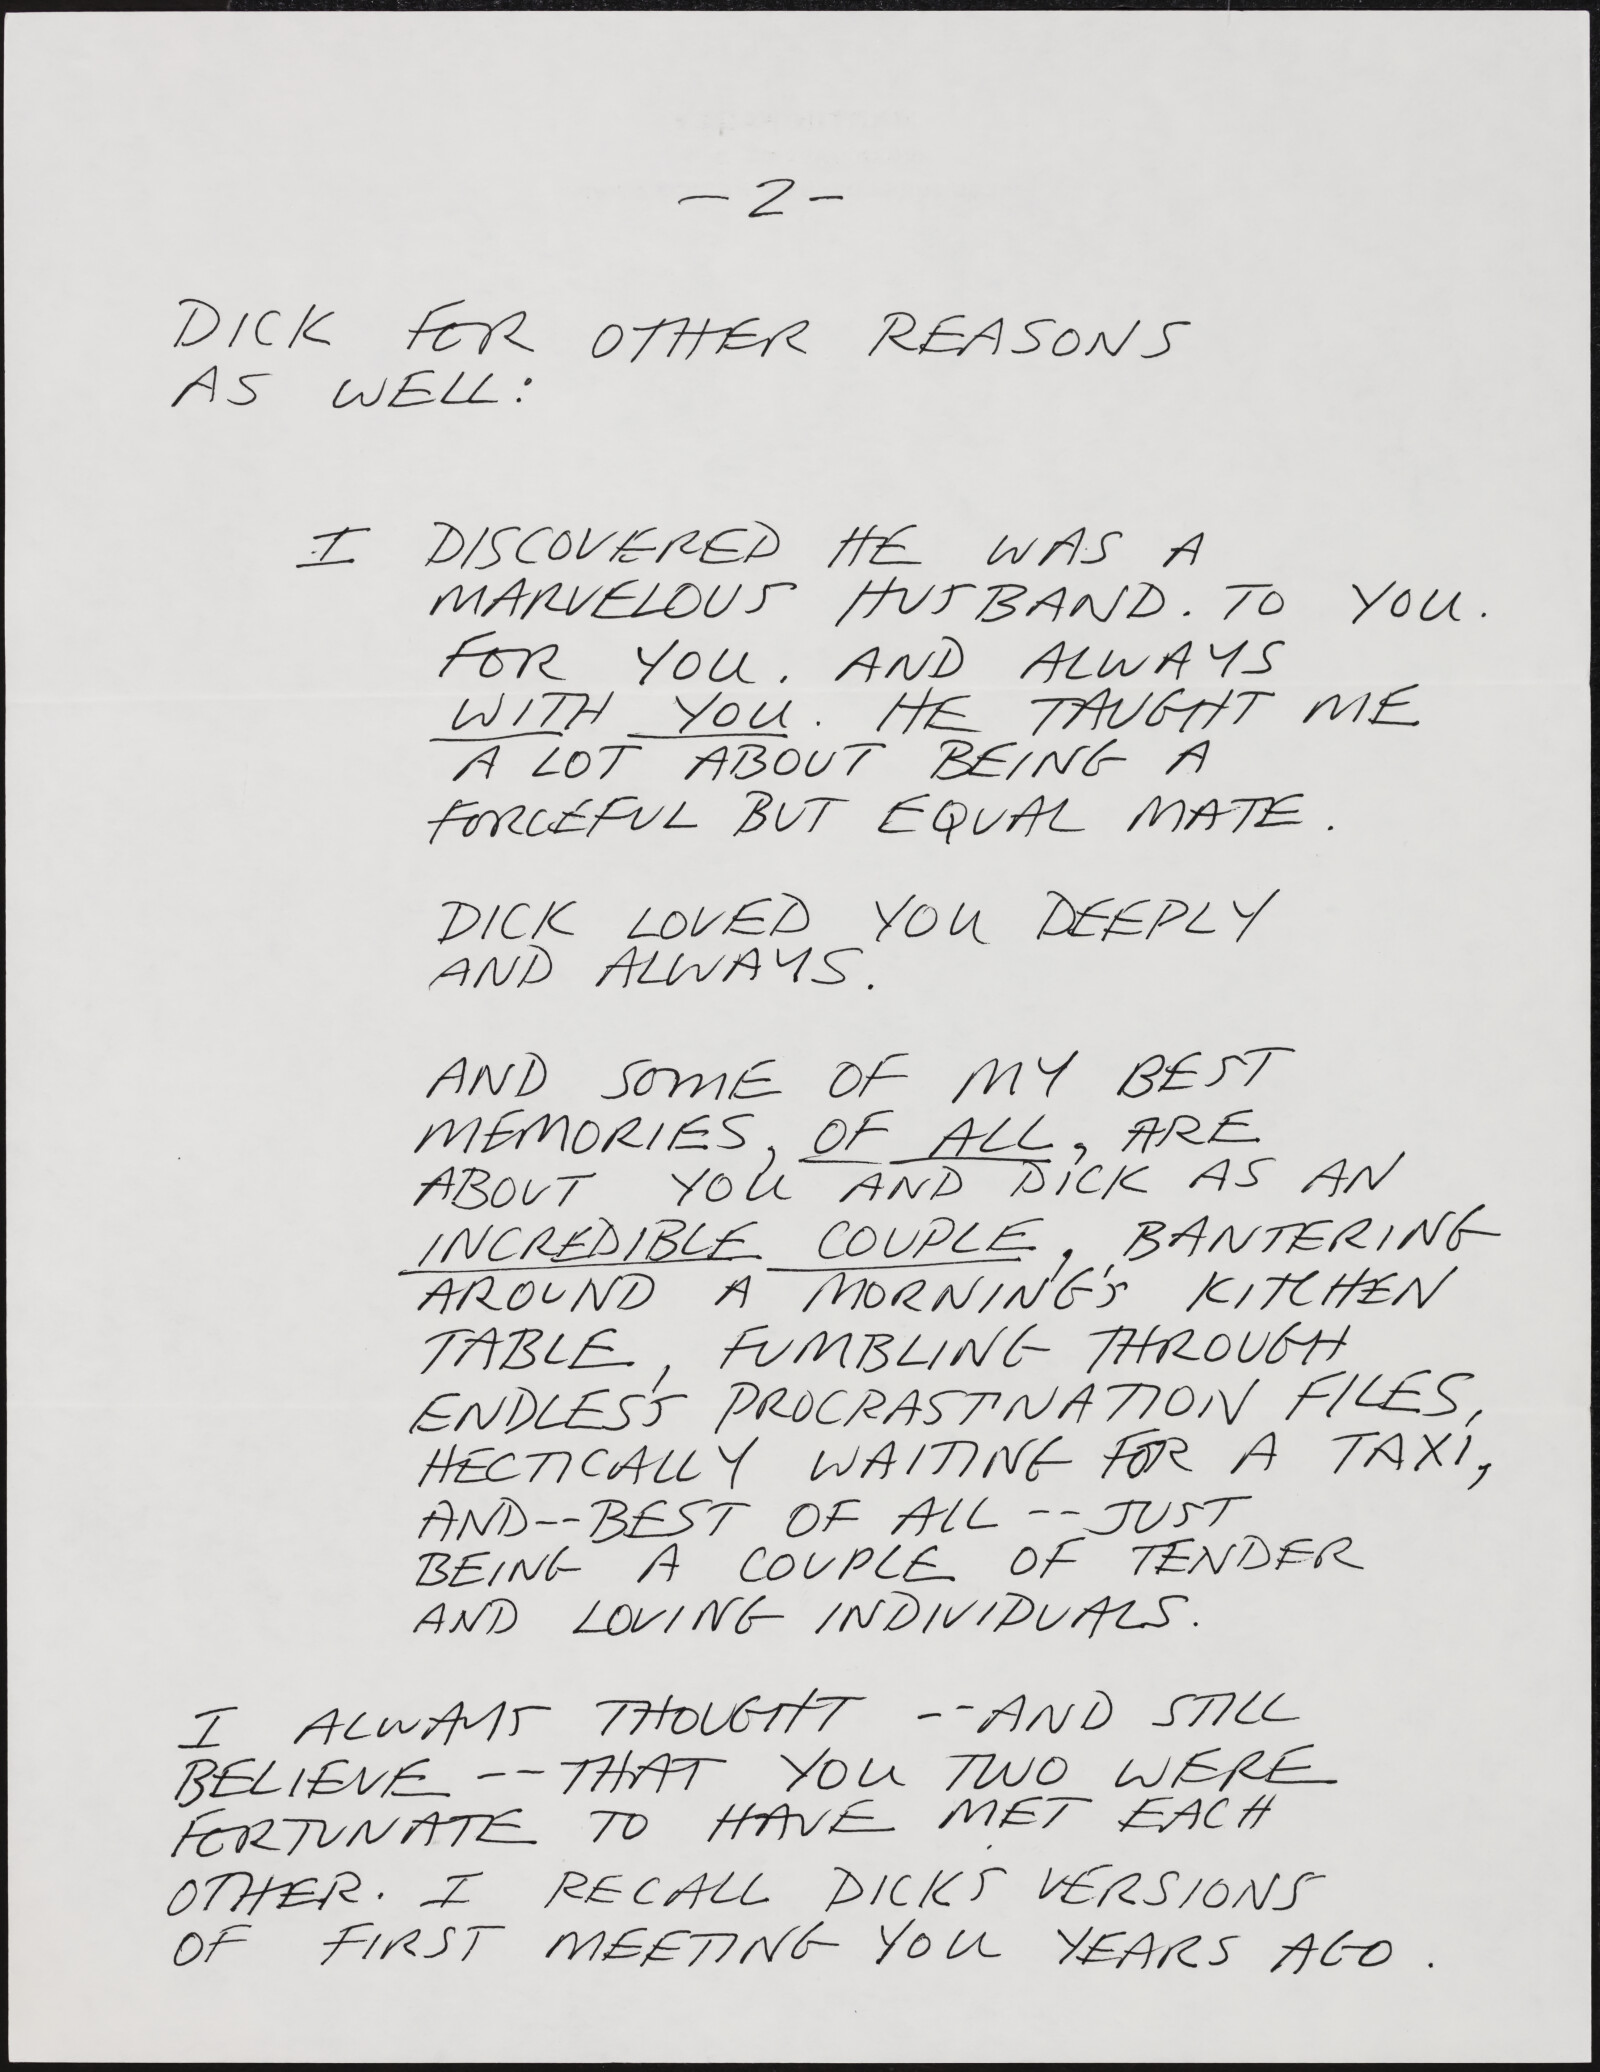 -2-
DICK FOR OTHER REASONS
AS WELL:
I DISCOVERED HE WAS A
MARVELOUS HUSBAND. TO YOU.
FOR YOU. AND ALWAYS
WITH YOU. HE TAUGHT ME
A LOT ABOUT BEING A
FORCEFUL BUT EQUAL MATE.
DICK LOVED YOU DEEPLY
AND ALWAYS.
AND SOME OF MY BEST
MEMORIES, OF ALL, ARE
ABOUT YOU AND DICK AS AN
INCREDIBLE COUPLE, BANTERING
AROUND A MORNING'S KITCHEN
TABLE, FUMBLING THROUGH
ENDLESS PROCRASTINATION FILES,
HECTICALLY WAITING FOR A TAXI,
AND--BEST OF ALL--JUST
BEING A COUPLE OF TENDER
AND LOVING INDIVIDUALS.
I ALWAYS THOUGHT --AND STILL
BELIEVE--THAT YOU TWO WERE
FORTUNATE TO HAVE MET EACH
OTHER. I RECALL DICKS VERSIONS
OF FIRST MEETING YOU YEARS AGO.